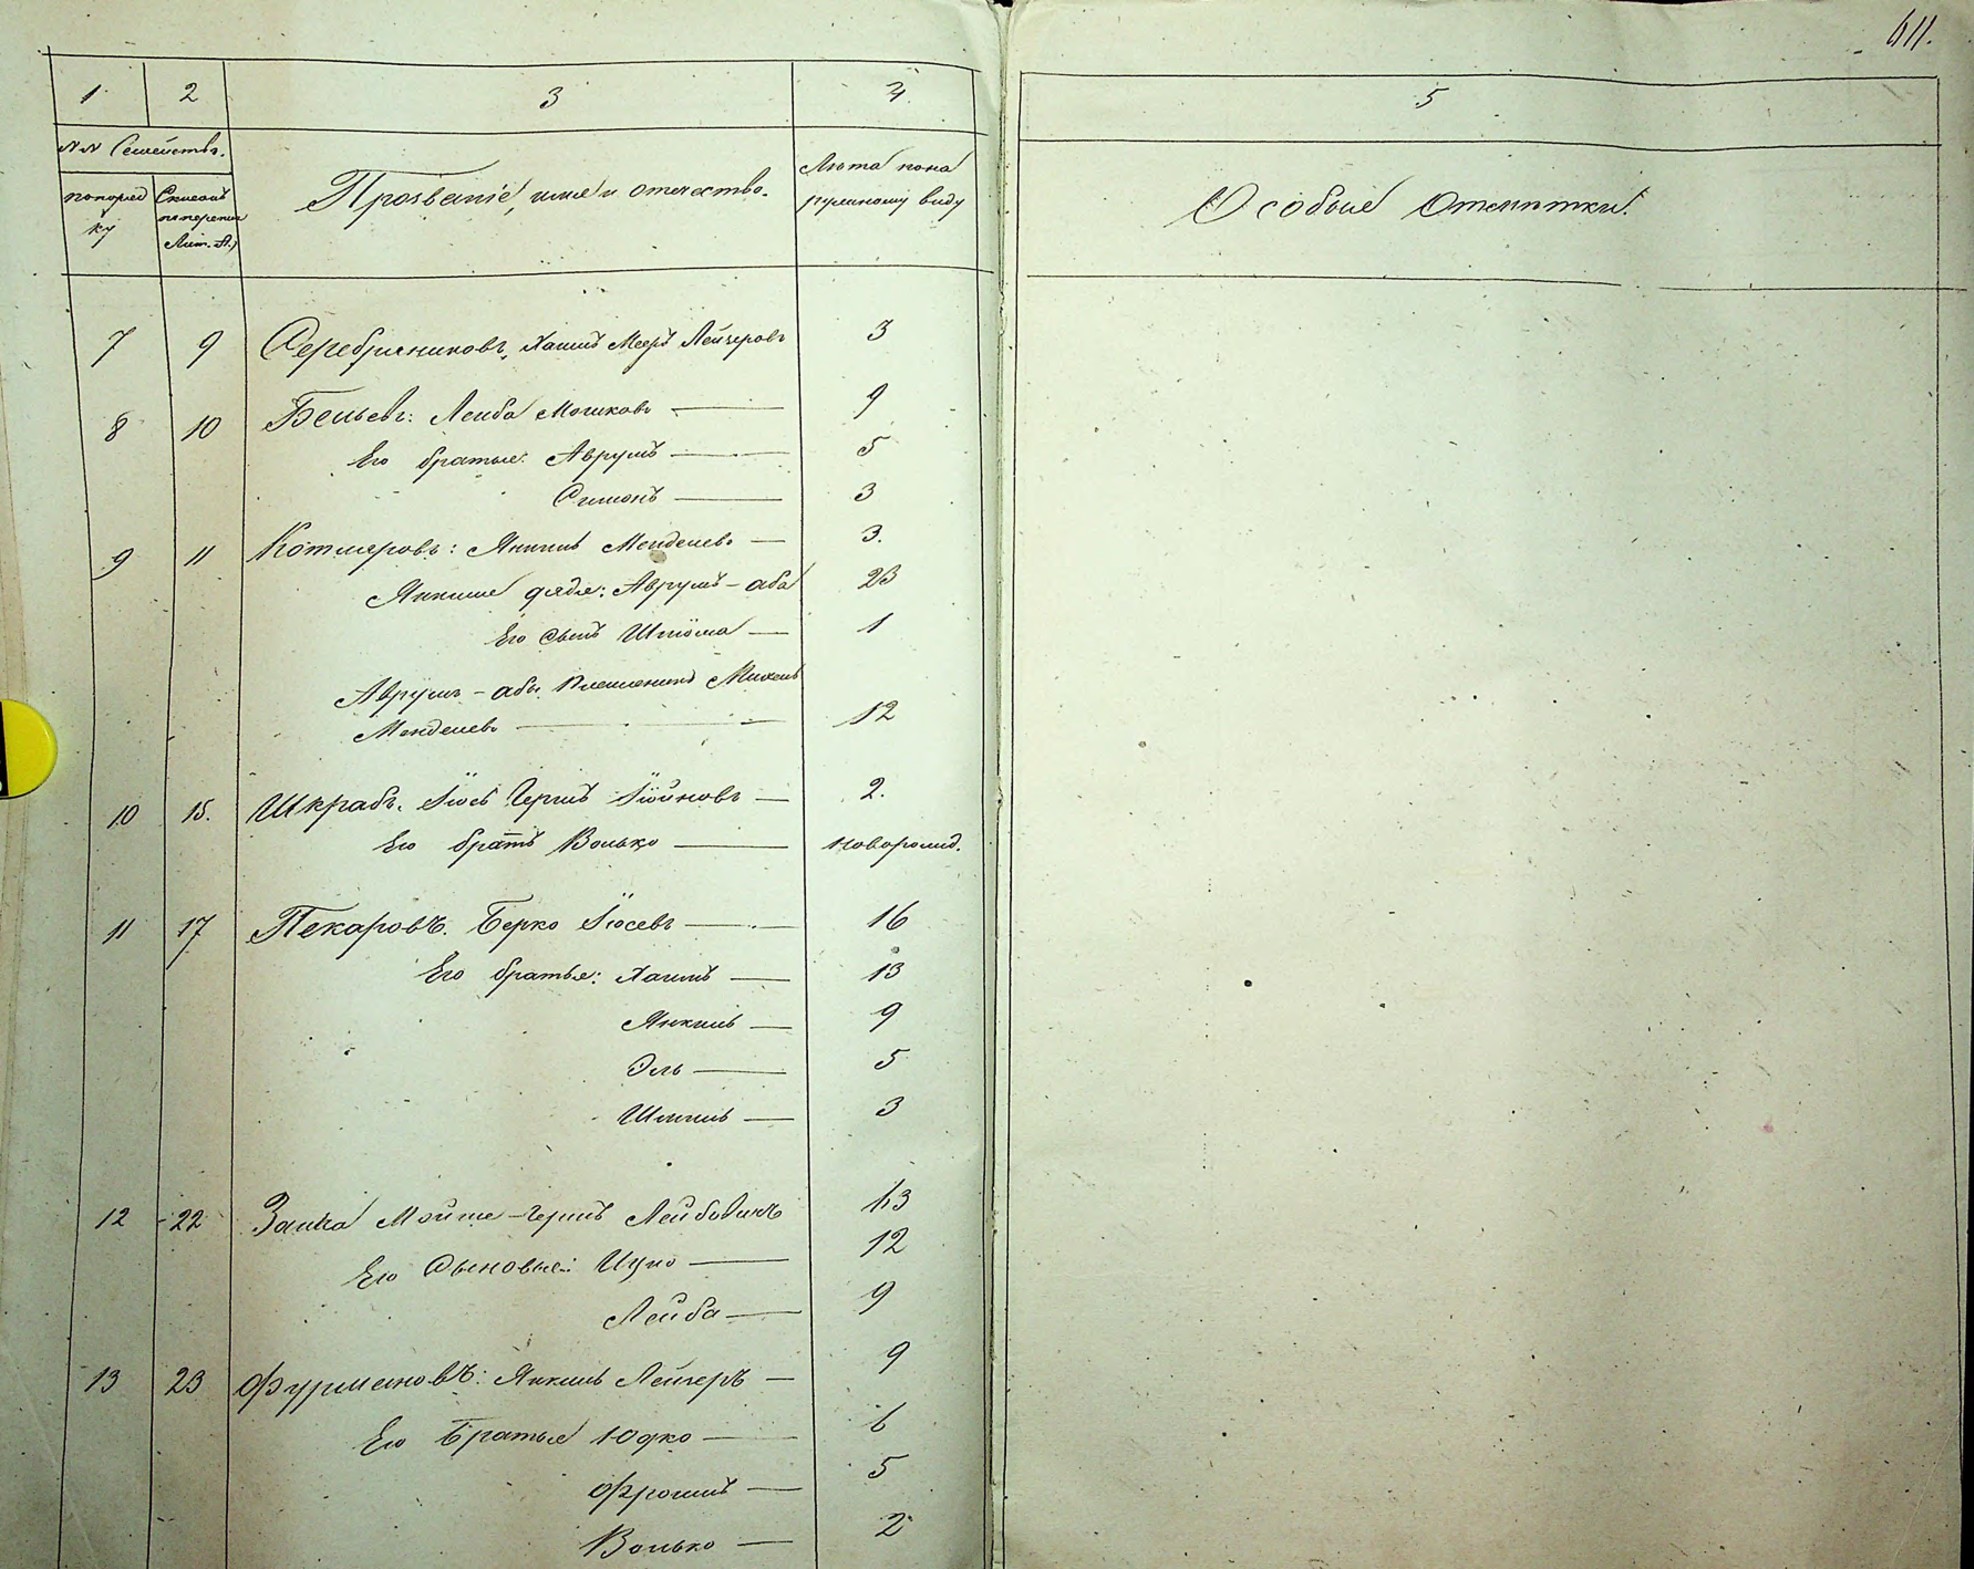 611.
1 2 3 4 5
№№ Семействъ.
по поряд
ку
Сказокъ
по переписи
Лит. А.)
Прозваніе, имя и отчество.
Лѣта по на
ружному виду
Особые Отмѣтки.
7 9 Серебрениковъ, Хаимъ Мееръ Лейзеровъ 3
8 10 Бельевъ: Лейба Мошковъ — 9
Его братья: Аврумъ — 5
Симонъ — 3
9 11 Котляровъ: Янкель Менделевъ — 3.
Янкеля дядя: Аврумъ - аба 23
Его сынъ Шлёма — 1
Аврумъ - абы племянникъ Михель
Менделевъ — 12
10 15. Шкрабъ. Іось Гершъ Іойновъ — 2.
Его братъ Волько — новорожд.
11 17 Пекаровъ. Берко Іосевъ — 16
Его братья: Хаимъ — 13
Янкель — 9
Эль — 5
Шмиль — 3
12 22 Заика Мойше-Гершъ Лейбовичъ 43
Его Сыновья: Ицко — 12
Лейба — 9
13 23 Фурмановъ: Янкель Лейзеръ — 9
Его Братья Юдко — 6
Фроимъ — 5
Волько — 2